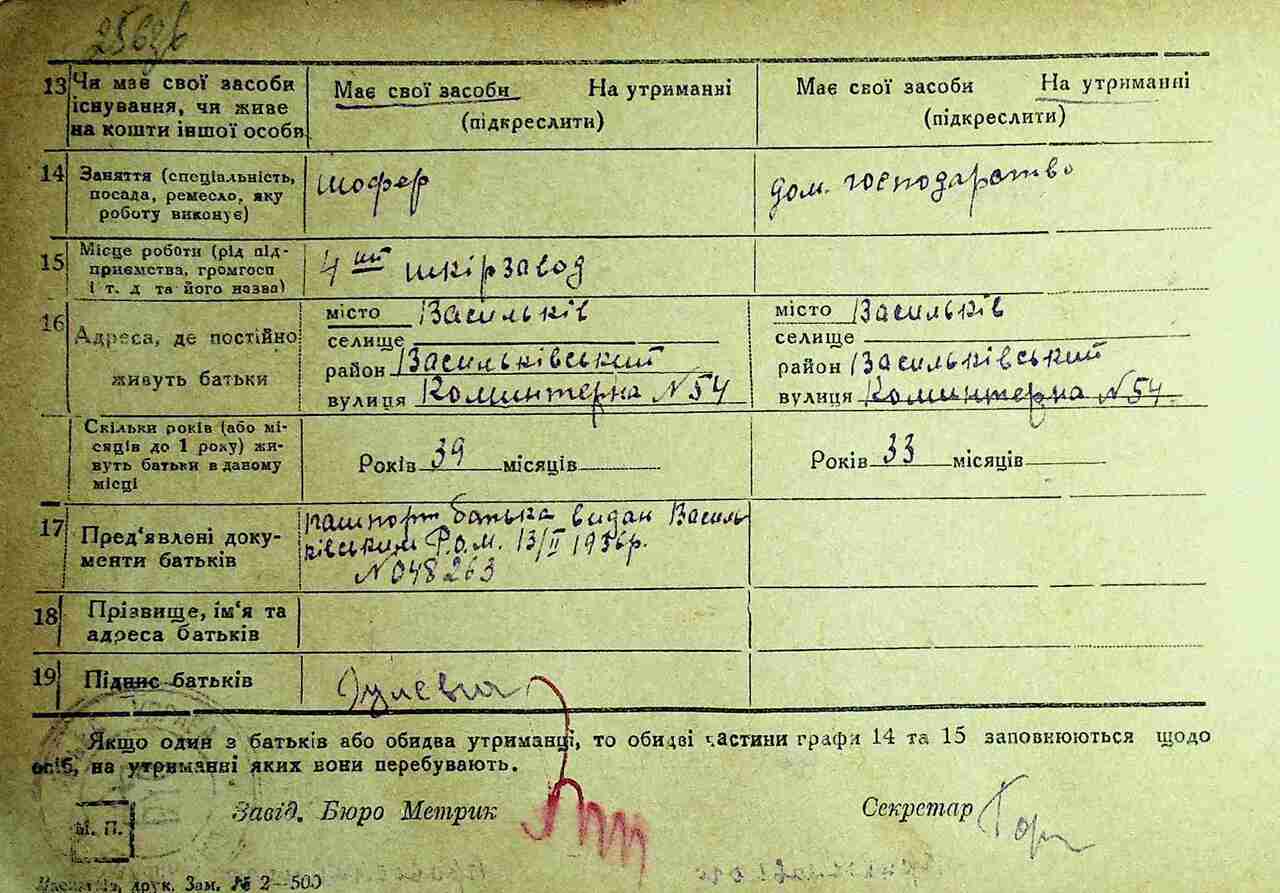 13 Чи має свої засоби
існування, чи живе
на кошти іншої особи.
Має свої засоби На утриманні
(підкреслити)
Має свої засоби На утриманні
(підкреслити)
14 Заняття (спеціальність,
посада, ремесло, яку
роботу виконує)
шофер
дом. господарство
15 Місце роботи (рід під-
приємства, громгосп
і т. д та його назва)
4ий шкірзавод
16 Адреса, де постійно
живуть батьки
місто Васильків
селище
район Васильківський
вулиця Коминтерна № 54
місто Васильків
селище
район Васильківський
вулиця Коминтерна № 54
Скільки років (або мі-
сяців до 1 року) жи-
вуть батьки в даному
місці
Років 39 місяців
Років 33 місяців
17 Пред'явлені доку-
менти батьків
пашпорт батька видан Василь
ківським Р.О.М. 13/II 1936р.
№ 048263
18 Прізвище, ім'я та
адреса батьків
19 Підпис батьків
Якщо один з батьків або обидва утриманці, то обидві частини графи 14 та 15 заповнюються щодо
осіб, на утриманні яких вони перебувають.
Завід. Бюро Метрик
Секретар
М. П.
друк. Зам. № 2—500